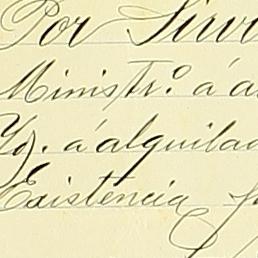 Por Sirv
Ministr.º á a
Yd. á alquilad
Existencia